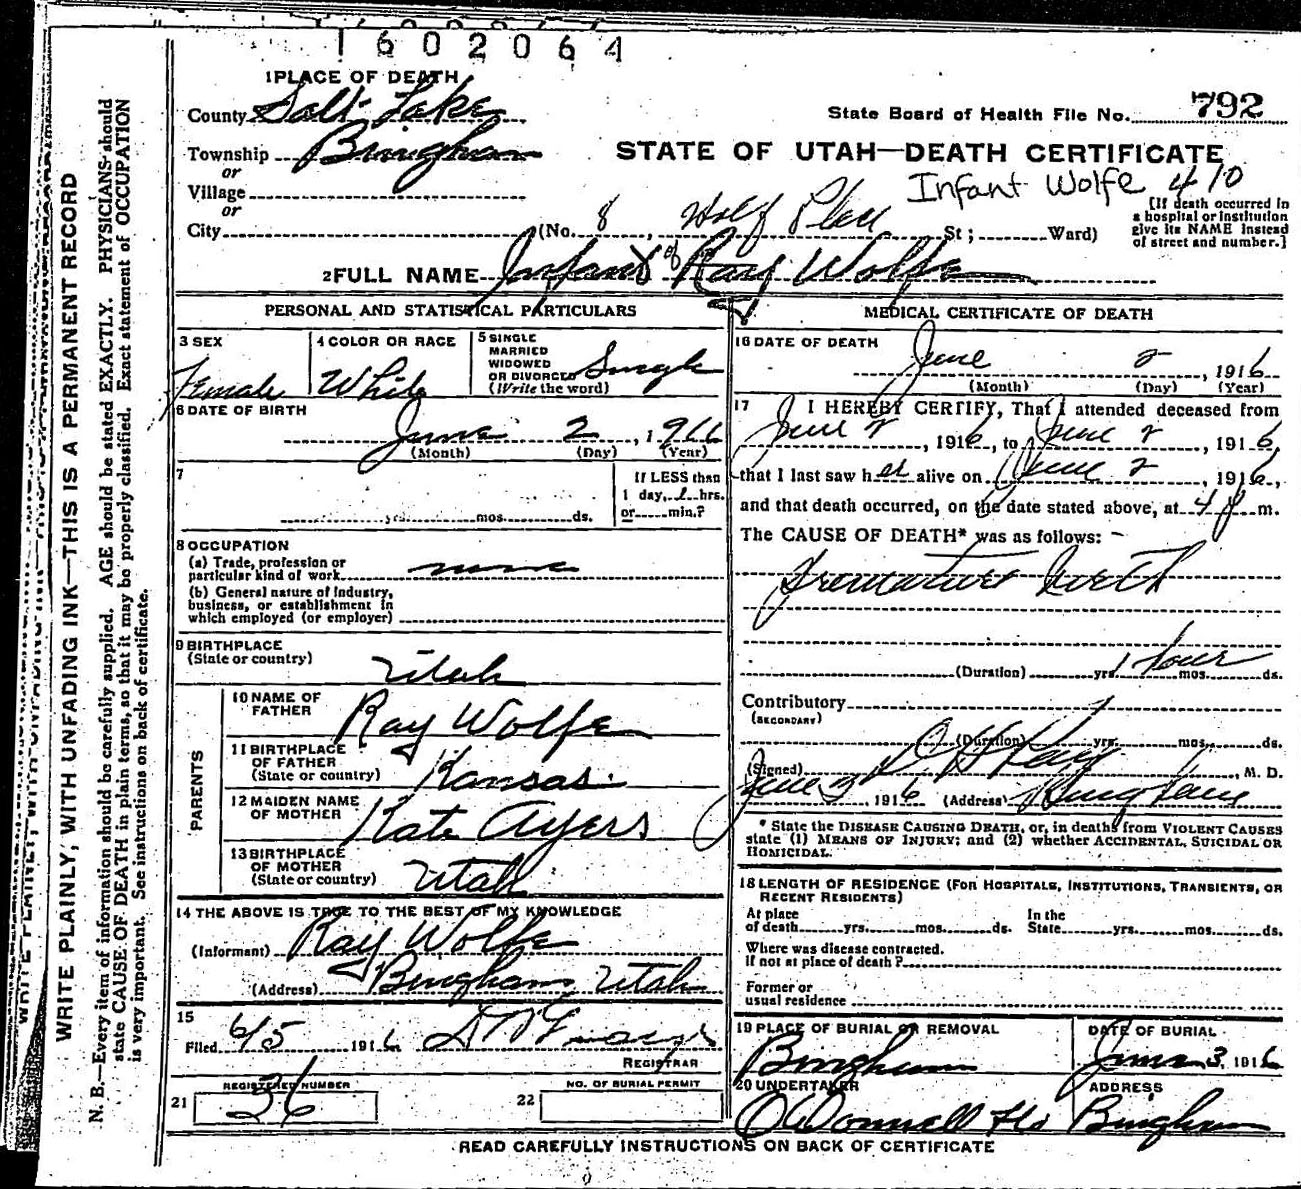 1602064
1 PLACE OF DEATH
County Salt Lake
State Board of Health File No. 792
Township Bingham
or
STATE OF UTAH—DEATH CERTIFICATE
Village
Infant Wolfe 410
or
City (No. 8, St; Ward)
[If death occurred in
a hospital or institution
give its NAME instead
of street and number.]
2 FULL NAME Infant of Ray Wolfe
PERSONAL AND STATISTICAL PARTICULARS
3 SEX
Female
4 COLOR OR RACE
White
5 SINGLE
MARRIED
WIDOWED
OR DIVORCED
(Write the word)
Single
6 DATE OF BIRTH
June 2, 1916
(Month) (Day) (Year)
7
yrs. mos. ds.
If LESS than
1 day, 1 hrs.
or min.?
8 OCCUPATION
(a) Trade, profession or
particular kind of work none
(b) General nature of industry,
business, or establishment in
which employed (or employer)
9 BIRTHPLACE
(State or country)
Utah
PARENTS
10 NAME OF
FATHER
Ray Wolfe
11 BIRTHPLACE
OF FATHER
(State or country)
Kansas
12 MAIDEN NAME
OF MOTHER
Kate Ayers
13 BIRTHPLACE
OF MOTHER
(State or country)
Utah
14 THE ABOVE IS TRUE TO THE BEST OF MY KNOWLEDGE
(Informant) Ray Wolfe
(Address) Bingham, Utah
15
Filed 6/5 1916
REGISTRAR
REGISTERED NUMBER
21 36
NO. OF BURIAL PERMIT
22
MEDICAL CERTIFICATE OF DEATH
16 DATE OF DEATH
June 2, 1916
(Month) (Day) (Year)
17 I HEREBY CERTIFY, That I attended deceased from
June 2, 1916, to June 2, 1916
that I last saw her alive on June 2, 1916,
and that death occurred, on the date stated above, at 4 p m.
The CAUSE OF DEATH* was as follows:
Premature birth
(Duration) yrs. 1 hour mos. ds.
Contributory
(SECONDARY)
(Duration) yrs. mos. ds.
(Signed) M. D.
June 3, 1916 (Address) Bingham
* State the DISEASE CAUSING DEATH, or, in deaths from VIOLENT CAUSES
state (1) MEANS OF INJURY; and (2) whether ACCIDENTAL, SUICIDAL OR
HOMICIDAL.
18 LENGTH OF RESIDENCE (FOR HOSPITALS, INSTITUTIONS, TRANSIENTS, OR
RECENT RESIDENTS)
At place
of death yrs. mos. ds.
In the
State yrs. mos. ds.
Where was disease contracted.
If not at place of death?
Former or
usual residence
19 PLACE OF BURIAL OR REMOVAL
Bingham
DATE OF BURIAL
June 3, 1916
20 UNDERTAKER
O'Donnell
ADDRESS
Bingham
READ CAREFULLY INSTRUCTIONS ON BACK OF CERTIFICATE
WRITE PLAINLY, WITH UNFADING INK—THIS IS A PERMANENT RECORD
N. B.—Every item of information should be carefully supplied. AGE should be stated EXACTLY. PHYSICIANS should
state CAUSE OF DEATH in plain terms, so that it may be properly classified. Exact statement of OCCUPATION
is very important. See instructions on back of certificate.